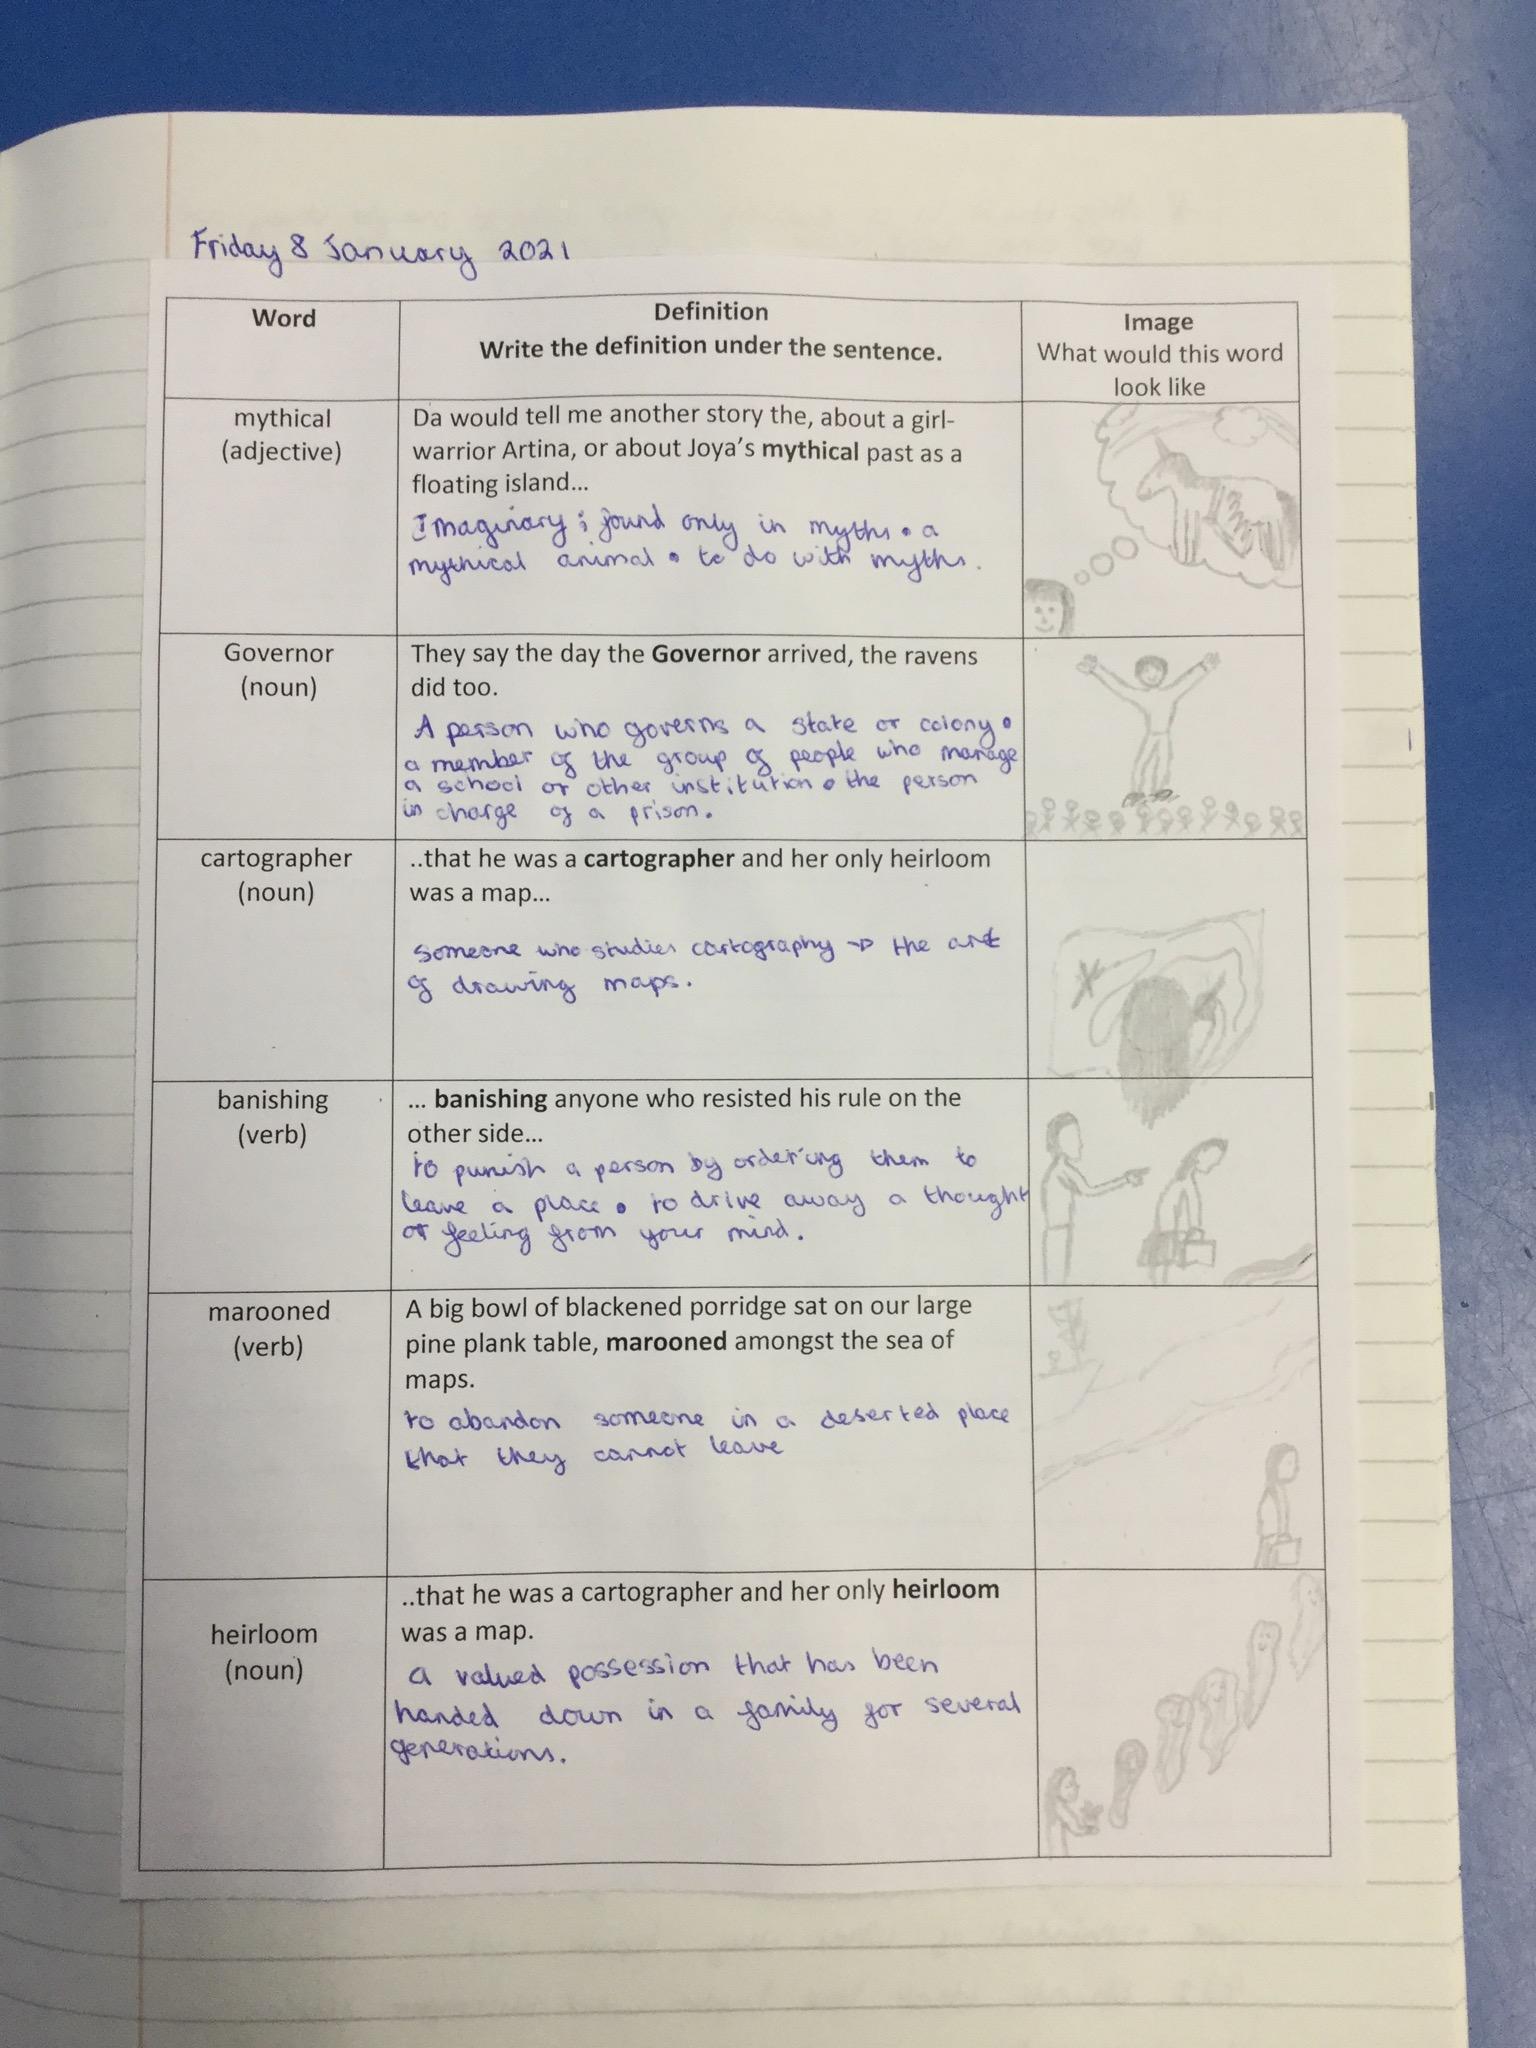 Friday 8 January 2021
Word
Definition
Write the definition under the sentence.
Image
What would this word
look like
mythical
(adjective)
Da would tell me another story the, about a girl-
warrior Artina, or about Joya's mythical past as a
floating island...
Imaginary; found only in myths • a
mythical animal • to do with myths.
Governor
(noun)
They say the day the Governor arrived, the ravens
did too.
A person who governs a state or colony •
a member of the group of people who manage
a school or other institution • the person
in charge of a prison.
cartographer
(noun)
..that he was a cartographer and her only heirloom
was a map...
Someone who studies cartography → the art
of drawing maps.
banishing
(verb)
... banishing anyone who resisted his rule on the
other side...
to punish a person by ordering them to
leave a place • to drive away a thought
or feeling from your mind.
marooned
(verb)
A big bowl of blackened porridge sat on our large
pine plank table, marooned amongst the sea of
maps.
to abandon someone in a deserted place
that they cannot leave
heirloom
(noun)
..that he was a cartographer and her only heirloom
was a map.
a valued possession that has been
handed down in a family for several
generations.